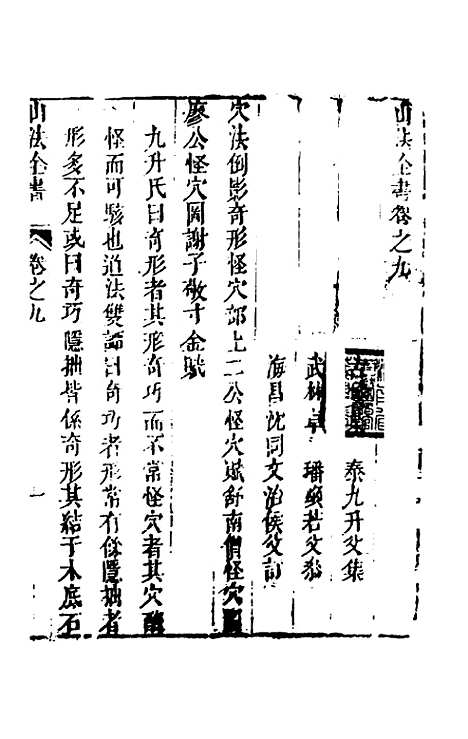 山法全書卷之九
泰九升父集
武林卓 璠奭若父叅
海昌沈同文治侯父訂
穴法倒影奇形怪穴部上二公怪穴賦舒南僧怪穴圖
廖公怪穴圖謝子敬寸金賦
九升氏曰奇形者其形奇巧而不常怪穴者其穴醜
怪而可駭也道法雙譚曰奇巧者形常有餘隱拙者
形多不足或曰奇巧隱拙皆係奇形其結于木底石
山法全書
卷之九
一